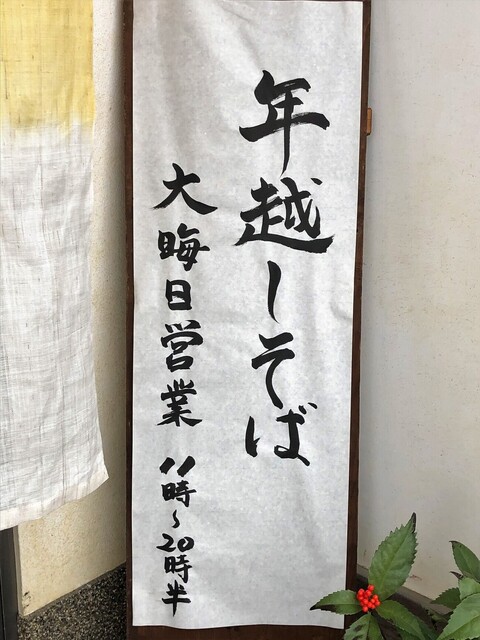 年越しそば
大晦日営業 11時～20時半